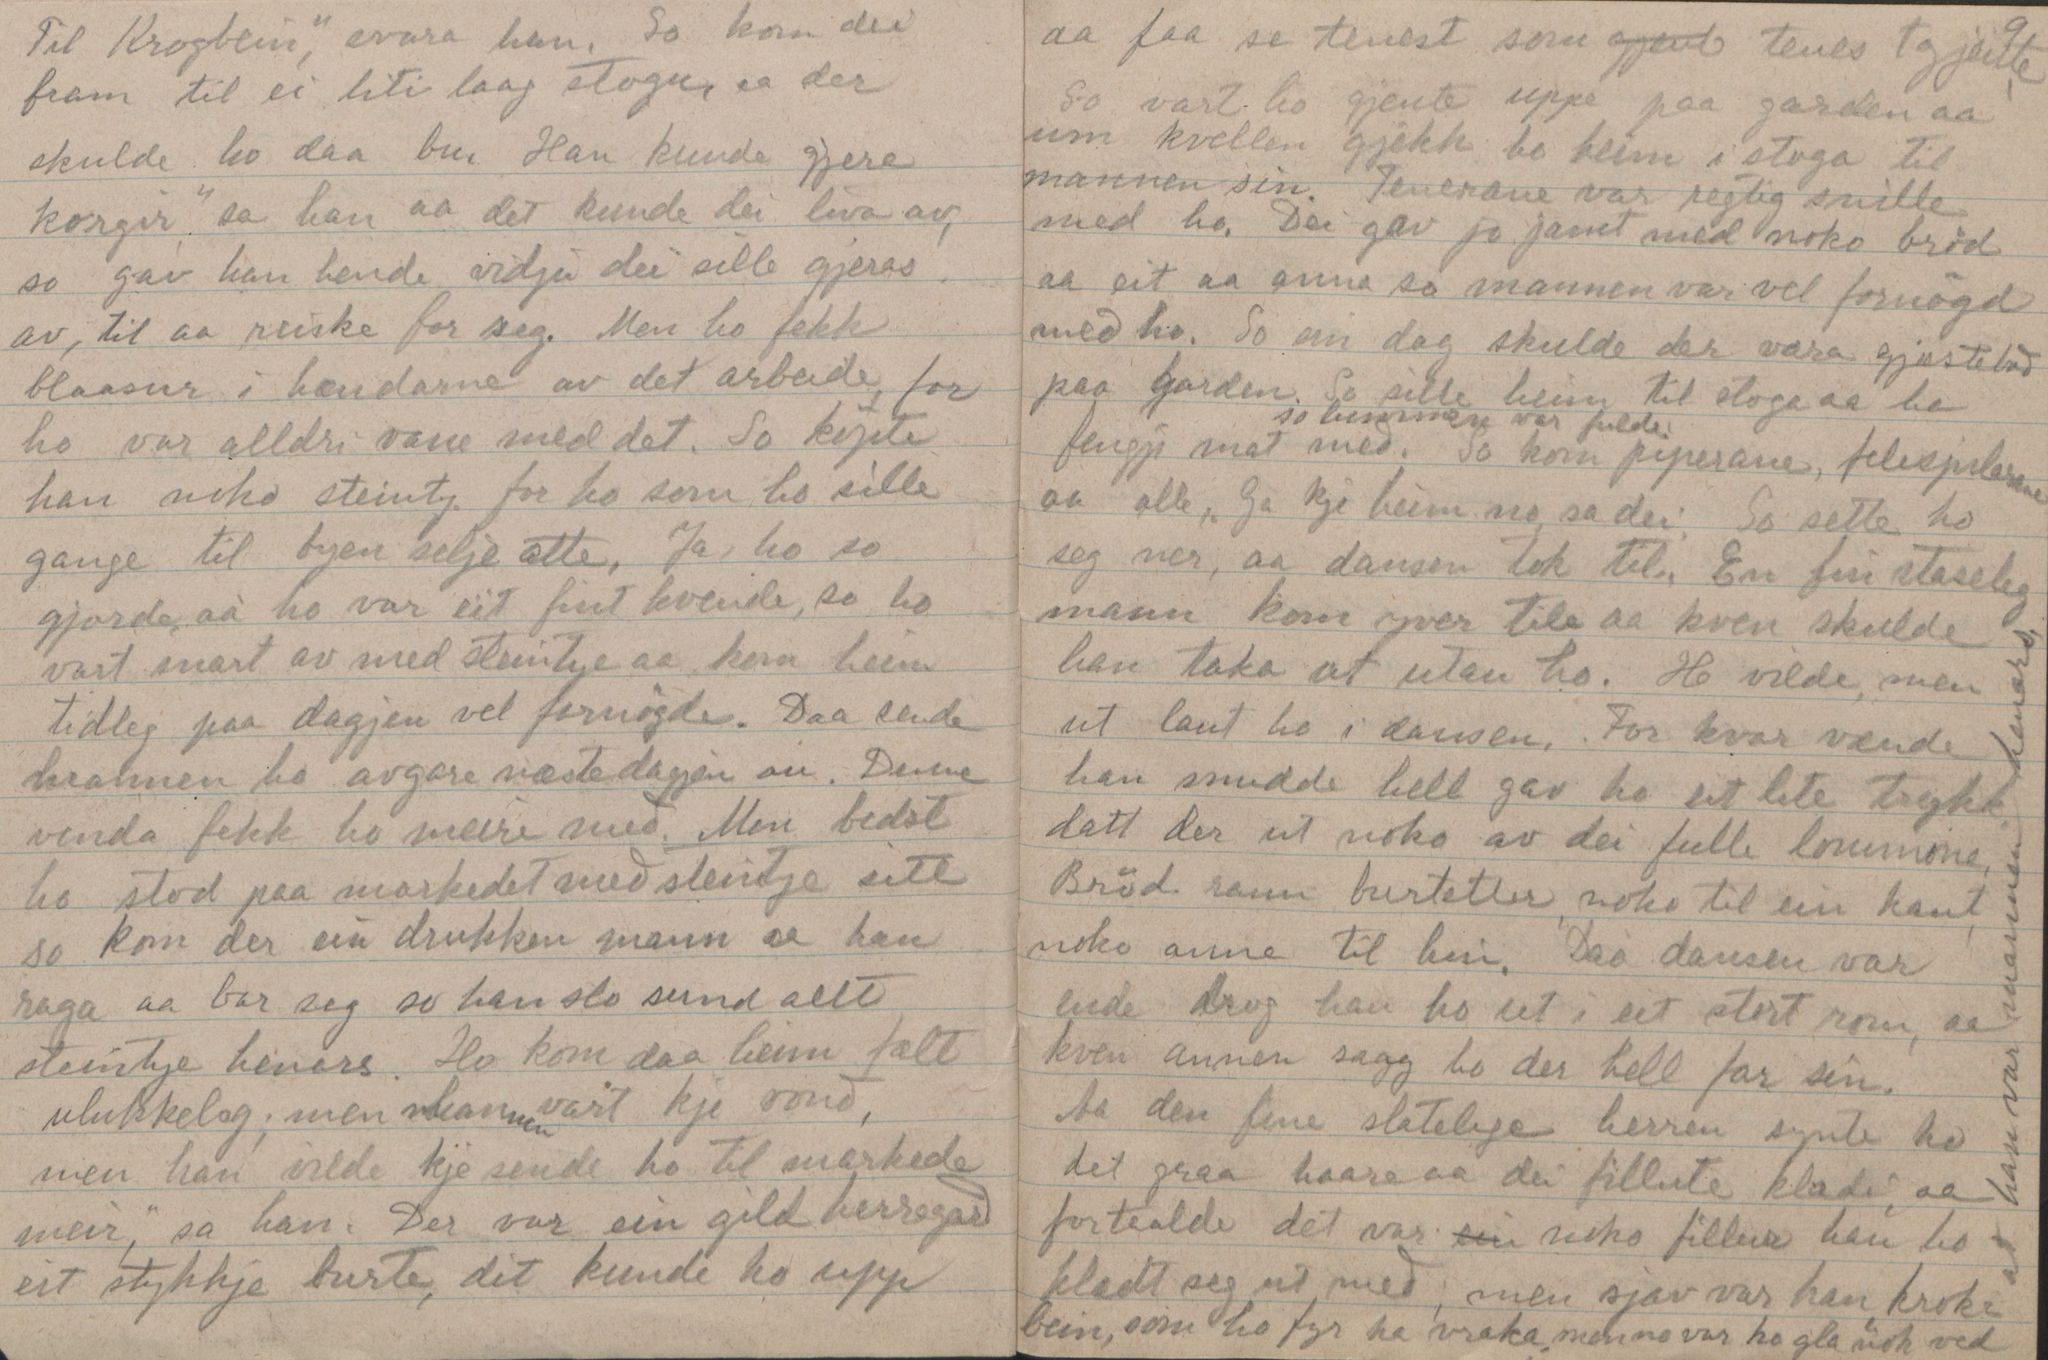 Til Krogbein", svara han. So kom dei
fram til ei liti laag stogu, aa der
skulde ho daa bu. Han kunde gjera
korgir," sa han aa det kunde dei liva av,
so gav han hende vidju dei sille gjeras
av, til aa reiske for seg. Men ho fekk
blaasur i hændarne av det arbeide, for
ho var alldri vane med det. So kjöpte
han noko steinty for ho som ho sille
gange til byen selje atte, Ja, ho so
gjorde, aa ho var eit fint kvende, so ho
vart snart av med steintye aa kom heim
tidleg paa dagjen vel fornögde. Daa sende
mannen ho avgare næste dagjen au. Denne
venda fekk ho meire med. Men bedst
ho stod paa markedet med steintye sitt
so kom der ein drukken mann aa han
raga aa bar seg so han slo sund allt
steintye henars. Ho kom daa heim fælt
ulukkeleg; men mannen vart kje vond,
men han vilde kje sende ho til markede
meir," sa han. Der var ein gild herregard
eit stykkje burte, dit kunde ho upp
9
aa faa se tenest som gjent tenes tgjente
So vart ho gjente uppe paa garden aa
um kvellen gjekk ho heim i stoga til
mannen sin. Tenerane var regtig snille
med ho. Dei gav jo jamt med noko bröd
aa eit aa anna so mannen var vel fornögd
med ho. So ein dag skulde der vera gjestebod
paa garden. So sille heim til stoga aa ha
so lummen var fulde.
fengji mat med. So kom piperane, felespelarane
aa alle, Ga kje heim no, sa dei. So sette ho
seg ner, aa dansen tok til. En fin staseleg
mann kom yver tile aa kven skulde
han taka ut utan ho. H vilde, men
ut laut ho i dansen. For kvar vende
han snudde hell gav ho eit lite trykk,
datt der ut noko av dei fulle lommone.
Bröd rann burtetter, noko til ein kant,
noko anna til hin. Daa dansen var
ende drog han ho ut i eit stort rom, aa
kven annen sagg ho der hell far sin.
Aa den fine statelege herren synte ho
det graa haare aa dei fillute kladi, aa
fortealde det var ein noko fillur han ho
kladt seg ut med, men sjav var han kroke
bein, som ho fyr ha vraka, men no var ho gla nok ved
at han var mannen henars.